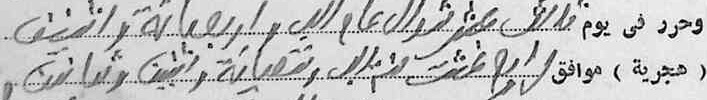 وحرر فى يوم ثالث عشر شوال عام الف واربعمائة واثنين
( هجرية ) موافق لرابع غشت سنة الف وتسعمائة واثنين وثمانين